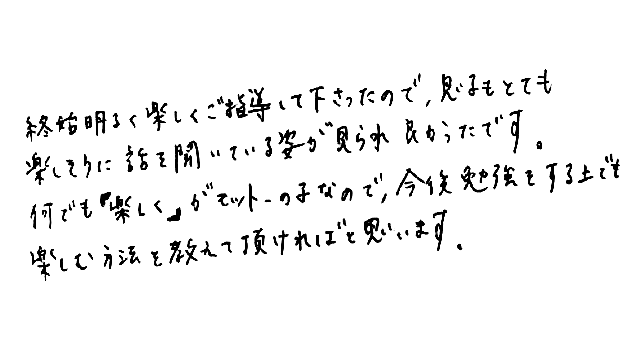 終始明るく楽しくご指導して下さったので、息子もとても
楽しそうに話を聞いている姿が見られ良かったです。
何でも『楽しく』がモットーの子なので、今後勉強をする上でも
楽しむ方法を教えて頂ければと思います。